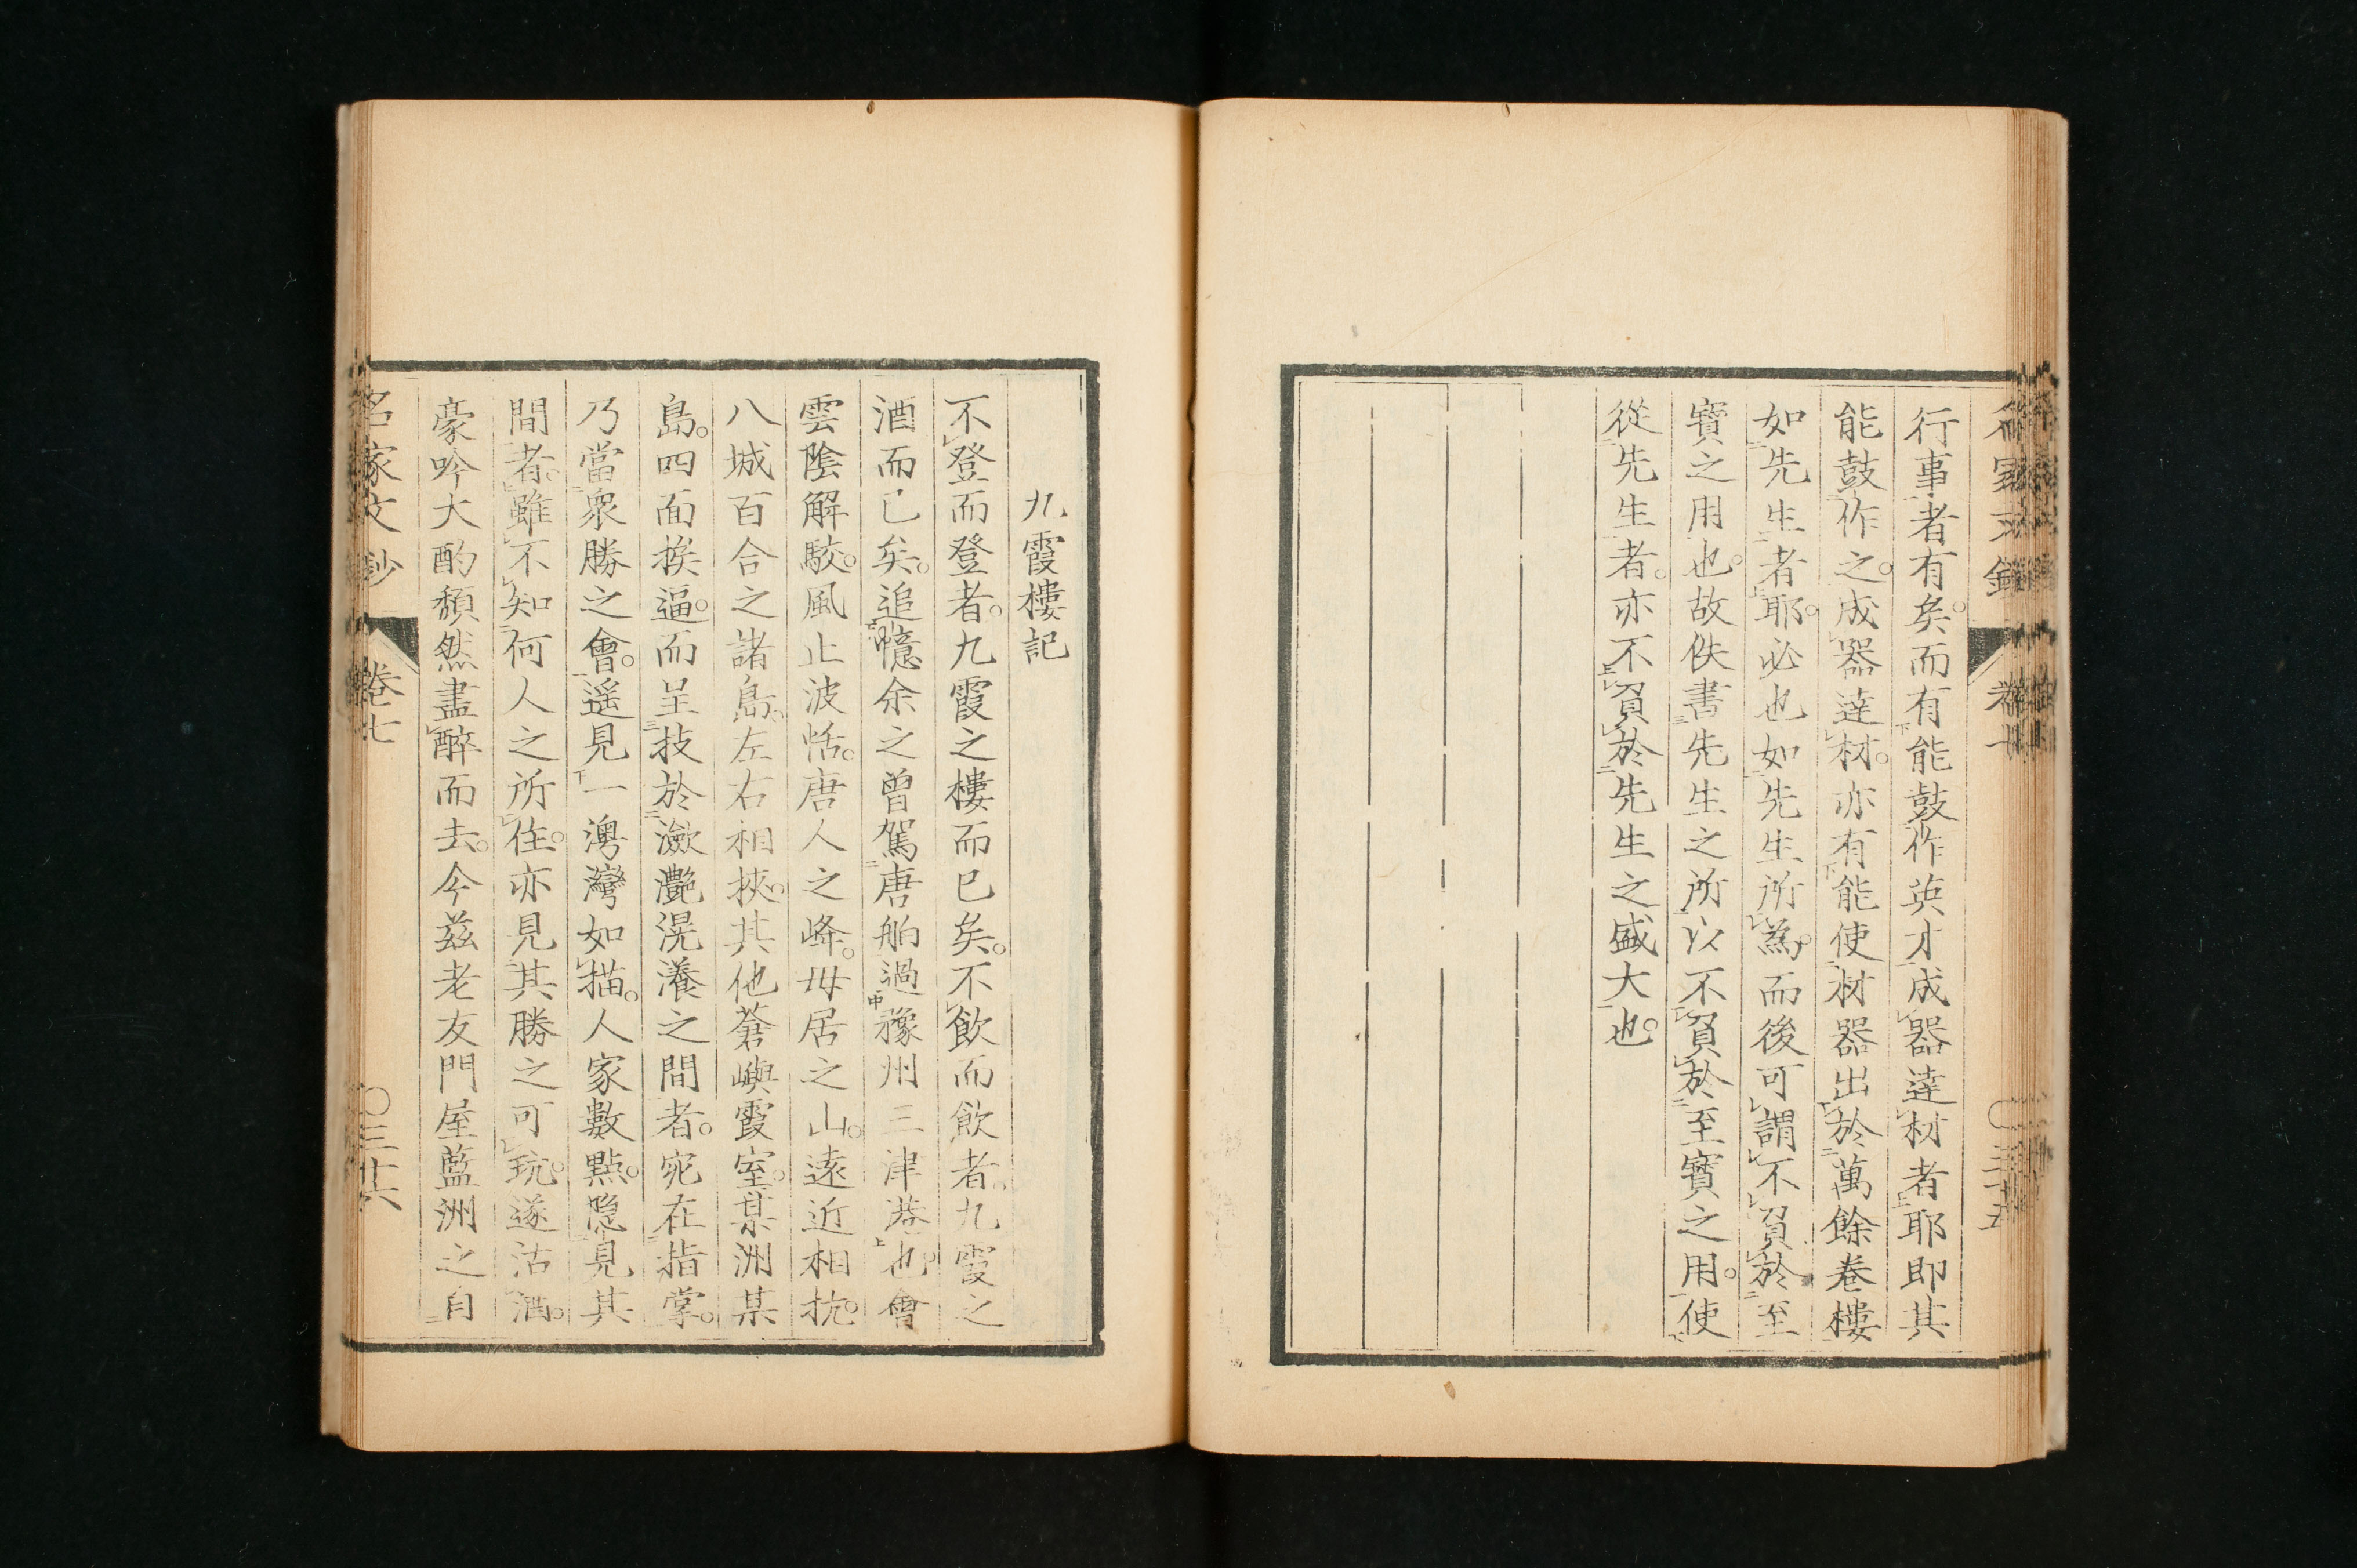 行事者有矣。而有能鼓作英才成器達材者耶即其
能鼓作之。成器達材。亦有能使材器出於萬餘卷樓
如先生者耶。必也如先生所為。而後可謂不負於至
寶之用也。故佚書先生之所以不負於至寶之用。使
從先生者。亦不負於先生之盛大也。
九霞樓記
不登而登者。九霞之樓而已矣。不飲而飲者。九霞之
酒而已矣。追憶余之曾駕唐舶過豫州三津港也。會
雲陰解駁。風止波恬。唐人之峰。毋居之山。遠近相抗。
八城百合之諸島。左右相挾。其他蒼嶼霞室。某洲某
島。四面挨逼。而呈技於瀲灩滉瀁之間者。宛在指掌。
乃當衆勝之會。遥見一澚灣如描。人家數點。隠見其
間者。雖不知何人之所住。亦見其勝之可玩。遂沽酒。
豪吟大酌頽然盡醉而去。今茲老友門屋藍洲之自
名家文鈔
卷七
〇三十六